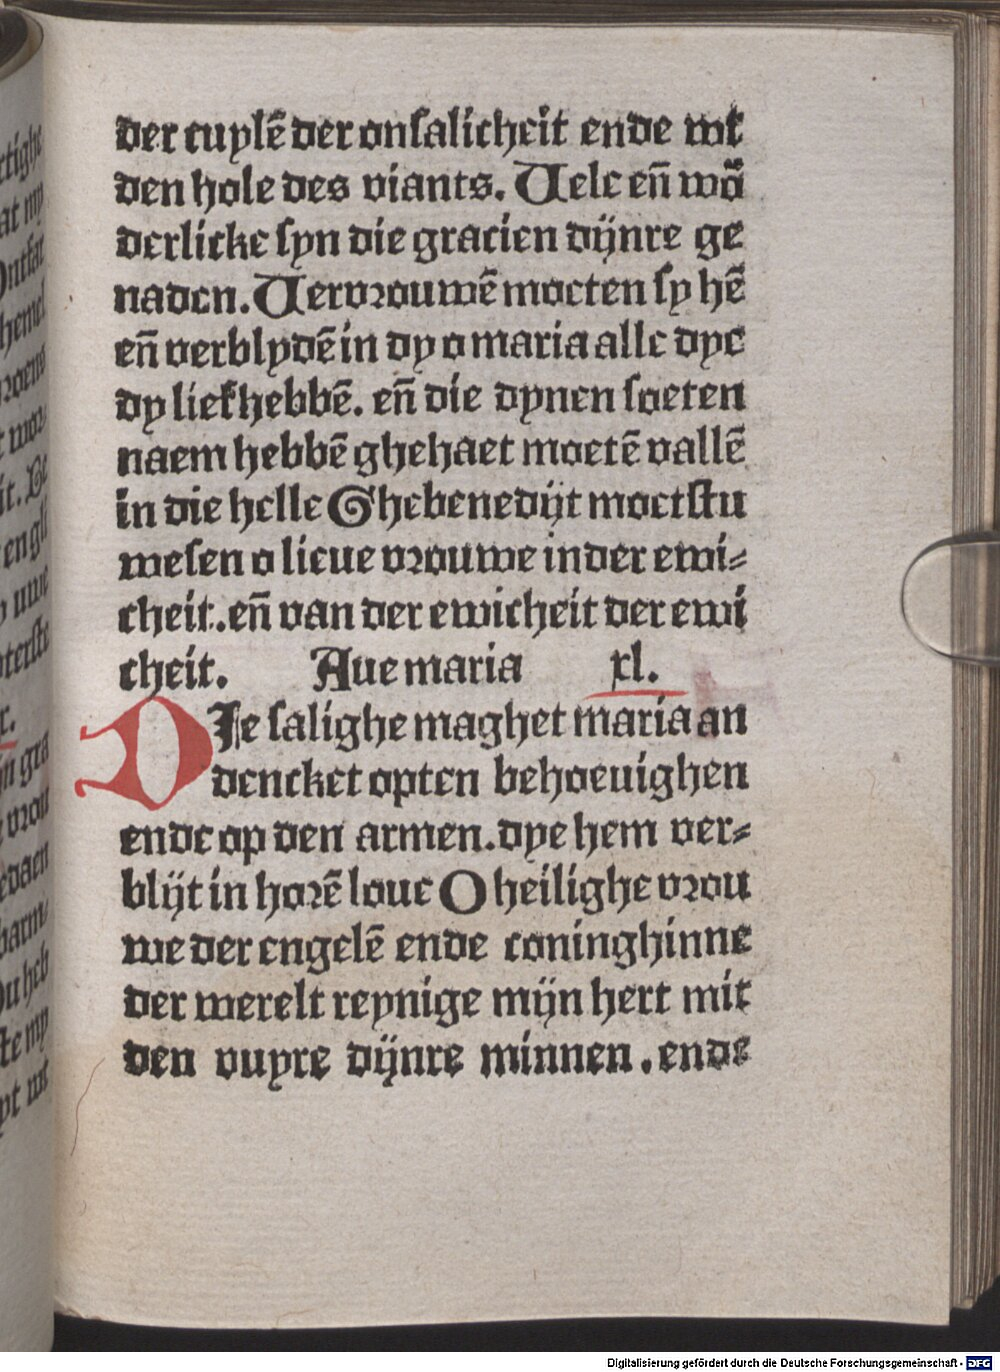 der cuylē der onſalicheit ende wt
den hole des viants. Uele en̄ wō
derlicke ſyn die gracien dijnre ge
naden. Vervrouwē moeten ſy hē
en̄ verblydē in dy o maria alle dye
dy lief hebbē. en̄ die dynen ſoeten
naem hebbē ghehaet moetē vallē
in die helle Ghebenedijt moetſtu
weſen o lieue vrouwe in der ewi⸗
cheit. en̄ van der ewicheit der ewi
cheit. Aue maria xl.
DIe ſalighe maghet maria an
dencket opten behoeuighen
ende op den armen. dye hem ver⸗
blijt in horē loue O heilighe vrou
we der engelē ende coninghinne
der werelt reynige mijn hert mit
den vuyre dijnre minnen. ende
Digitalisierung gefördert durch die Deutsche Forschungsgemeinschaft - DFG